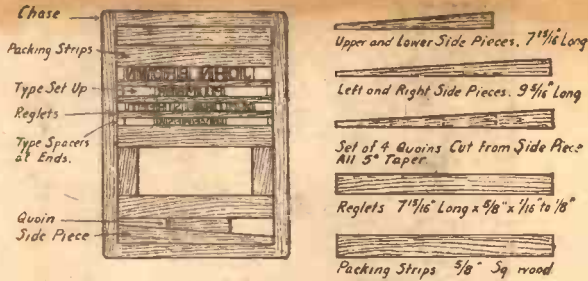 Chase
Packing Strips
Type Set Up
Reglets
Type Spacers
at Ends.
Quoin
Side Piece
Upper and Lower Side Pieces. 7 15/16" Long
Left and Right Side Pieces. 9 5/16" Long
Set of 4 Quoins Cut From Side Piece
All 5° Taper
Reglets 7 15/16" Long x 5/8" x 1/16" to 1/8"
Packing Strips 5/8" Sq wood